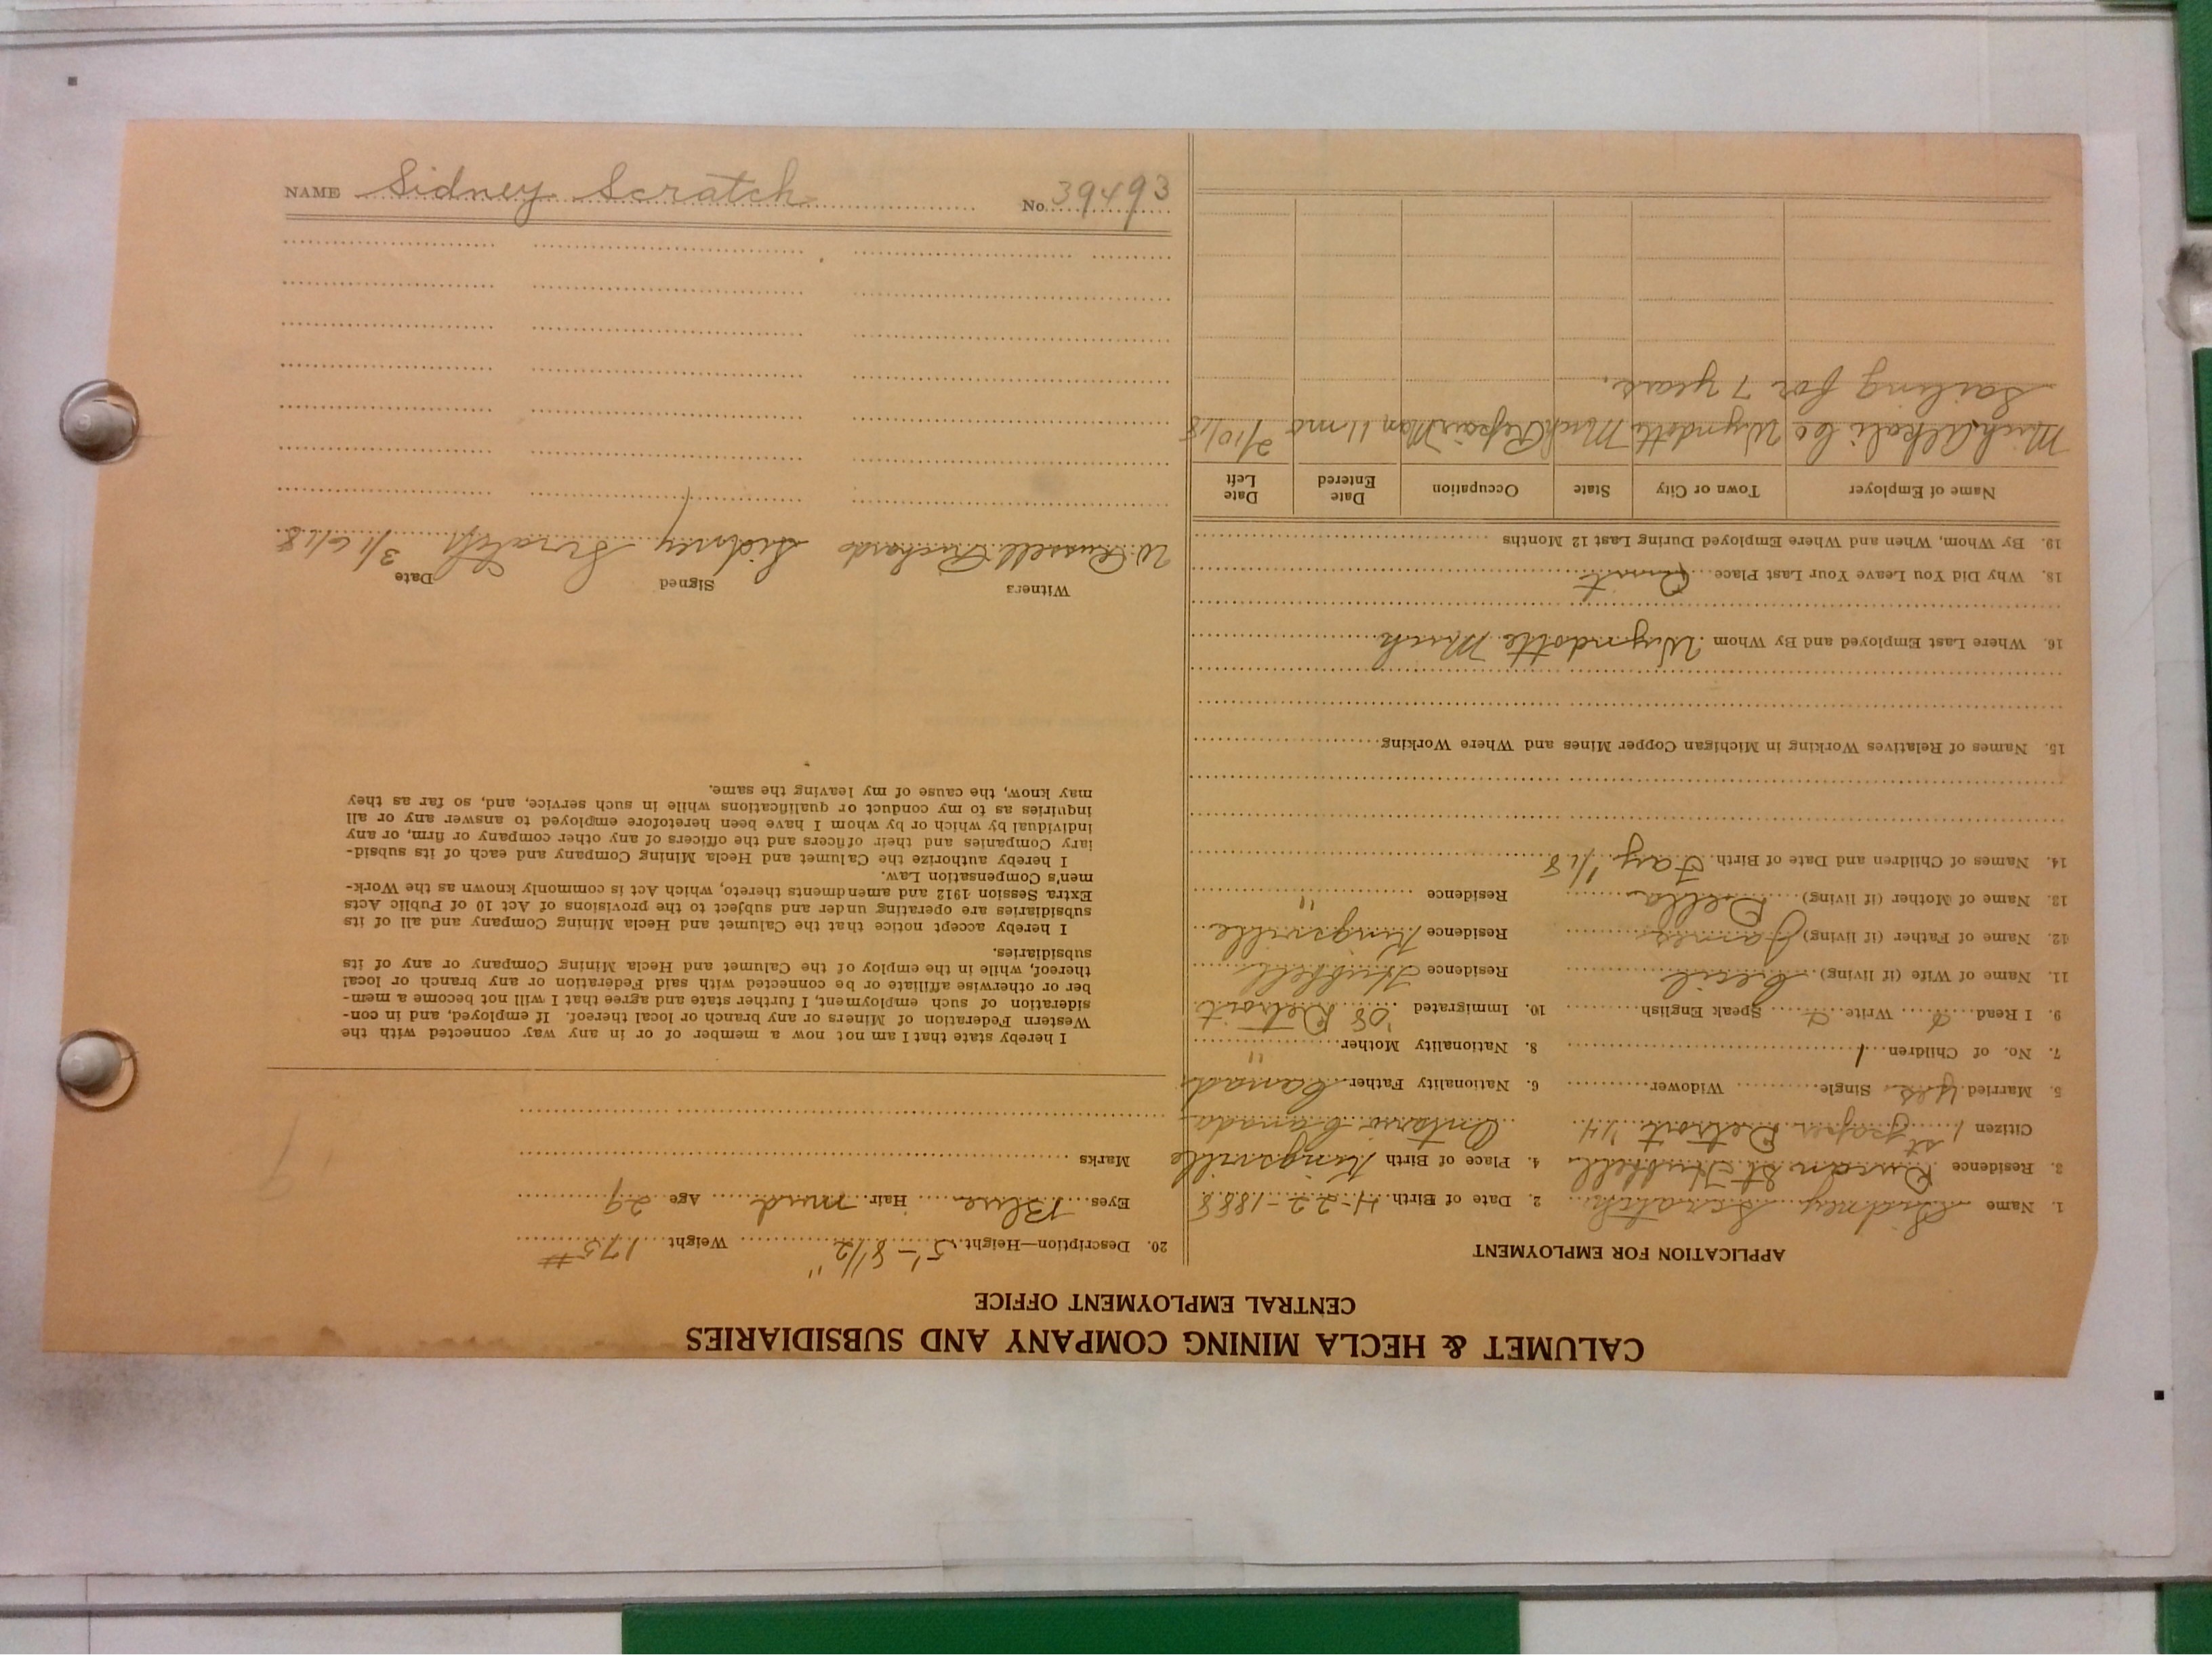 NAME Sidney Scratch No. 39493
CALUMET & HECLA MINING COMPANY AND SUBSIDIARIES
CENTRAL EMPLOYMENT OFFICE
APPLICATION FOR EMPLOYMENT
1. Name Sidney Scratch 2. Date of Birth 4-22-1888
3. Residence Duncan St Hubbell 4. Place of Birth Kingsville
Citizen 1st paper Detroit '14 Ontario Canada
5. Married Yes Single Widower 6. Nationality Father Canad
7. No. of Children 1 8. Nationality Mother "
9. I Read Write Speak English 10. Immigrated '08 Detroit
11. Name of Wife (if living) Cecil Residence Hubbell
12. Name of Father (if living) James Residence Kingsville
13. Name of Mother (if living) Della Residence "
14. Names of Children and Date of Birth Fay 1/18
15. Names of Relatives Working in Michigan Copper Mines and Where Working
16. Where Last Employed and By Whom Wyndotte Mich
18. Why Did You Leave Your Last Place
19. By Whom, When and Where Employed During Last 12 Months
Name of Employer Town or City State Occupation Date Entered Date Left
Mich Alkali Co Wyndotte Mich Repair Man 11 mo 2/10/18
Sailing for 7 years.
20. Description—Height 5'-8 1/2" Weight 175 #
Eyes Blue Hair mud Age 29
Marks
9
I hereby state that I am not now a member of or in any way connected with the
Western Federation of Miners or any branch or local thereof. If employed, and in con-
sideration of such employment, I further state and agree that I will not become a mem-
ber or otherwise affiliate or be connected with said Federation or any branch or local
thereof, while in the employ of the Calumet and Hecla Mining Company or any of its
subsidiaries.
I hereby accept notice that the Calumet and Hecla Mining Company and all of its
subsidiaries are operating under and subject to the provisions of Act 10 of Public Acts
Extra Session 1912 and amendments thereto, which Act is commonly known as the Work-
men's Compensation Law.
I hereby authorize the Calumet and Hecla Mining Company and each of its subsid-
iary Companies and their officers and the officers of any other company or firm, or any
individual by which or by whom I have been heretofore employed to answer any or all
inquiries as to my conduct or qualifications while in such service, and, so far as they
may know, the cause of my leaving the same.
Witness Signed Date
W. Russell Richards Sidney Scratch 3/16/18.